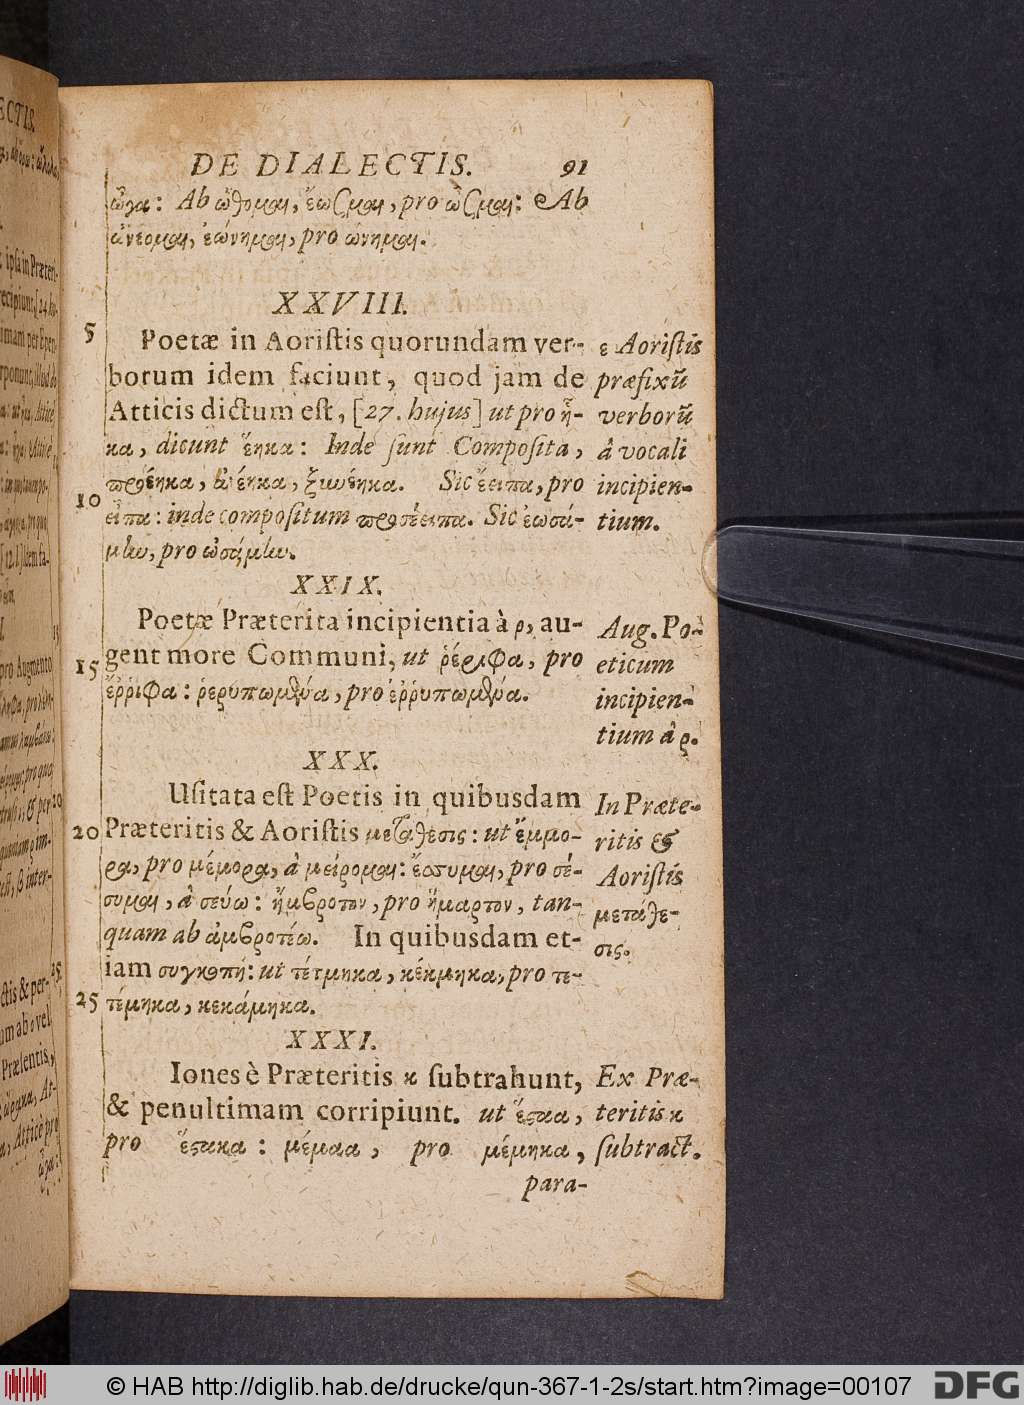 DE DIALECTIS. 91
ὦγα: Ab ὤθομαι, ἔωσμαι, pro ὦσμαι: Ab
ὠνέομαι, ἐώνημαι, pro ὤνημαι.
XXVIII.
5 Poetæ in Aoriſtis quorundam ver-
borum idem faciunt, quod jam de
Atticis dictum eſt, [27. hujus] ut pro ἧ-
κα, dicunt ἕηκα: Inde ſunt Compoſita,
10 προέηκα, ἀνέηκα, ξυνέηκα. Sic ἔειπα, pro
εἶπα: inde compoſitum προσέειπα. Sic ἐωσά-
μην, pro ὠσάμην.
ε Aoriſtis
præfixũ
verborũ
â vocali
incipien-
tium.
XXIX.
Poetæ Præterita incipientia à ρ, au-
15 gent more Communi, ut ῥέριφα, pro
ἔῤῥιφα: ῥερυπωμένα, pro ἐῤῥυπωμένα.
Aug. Po-
eticum
incipien-
tium â ρ.
XXX.
Uſitata eſt Poetis in quibusdam
20 Præteritis & Aoriſtis μετάθεσις: ut ἔμμο-
ρα, pro μέμορα, â μείρομαι: ἔσσυμαι, pro σέ-
συμαι, â σεύω: ἤμβροτον, pro ἥμαρτον, tan-
quam ab ἀμβροτέω. In quibusdam et-
iam συγκοπή: ut τέτμηκα, κέκμηκα, pro τε-
25 τέμηκα, κεκάμηκα.
In Præte-
ritis &
Aoriſtis
μετάθε-
σις.
XXXI.
Iones è Præteritis κ ſubtrahunt,
& penultimam corripiunt. ut ἕςαα,
pro ἕςακα: μέμαα, pro μέμηκα,
Ex Præ-
teritis κ
ſubtract.
para-
© HAB http://diglib.hab.de/drucke/qun-367-1-2s/start.htm?image=00107 DFG